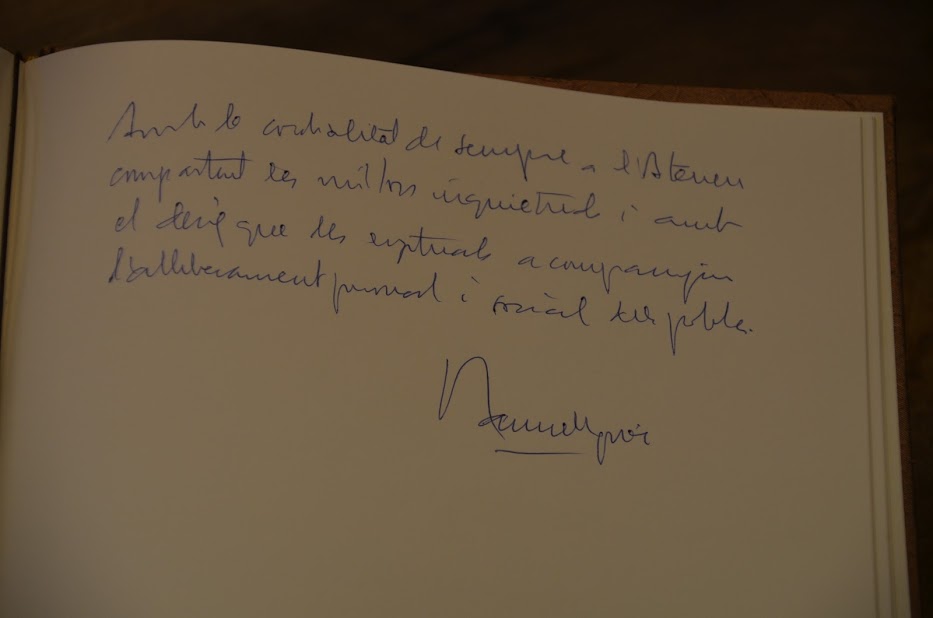 Amb la cordialitat de sempre a l'Ateneu
compartint les millors inquietuds i amb
el desig que les acompanyin
l'alliberament personal i social dels pobles.